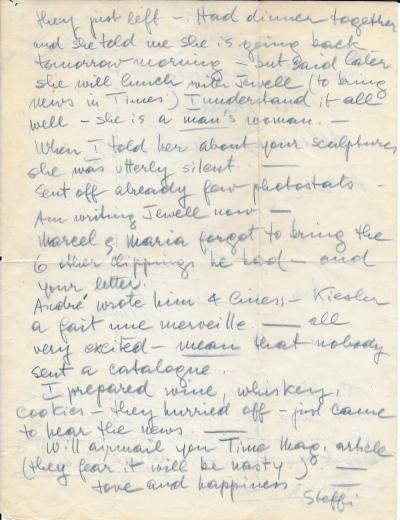 they just left –. Had dinner together
and she told me she is going back
tomorrow morning – but said later
she will lunch with Jewell (to bring
news in Times) I understand it all
well – she is a man's woman. –
When I told her about your sculptures
she was utterly silent. —
Sent off already few photostats –
Am writing Jewell now –
Marcel & Maria forgot to bring the
6 other clippings he had – and
your letter.
André wrote him 4 lines: – Kiesler
a fait une merveille. — all
very excited – mean that nobody
sent a catalogue.
I prepared wine, whiskey,
cookies – they hurried off – just came
to hear the news. —
Will airmail you Time Mag. article
(they fear it will be nasty) —
Love and happiness —
Steffi